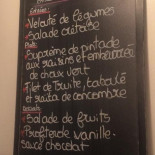 Entrées:
Velouté de légumes
Salade crétoise
Plats:
Suprême de pintade
aux raisins et embeurrée
de choux vert
Filet de truite, taboulé
et raita de concombre
Desserts
Salade de fruits
Profiterole vanille-
sauce chocolat